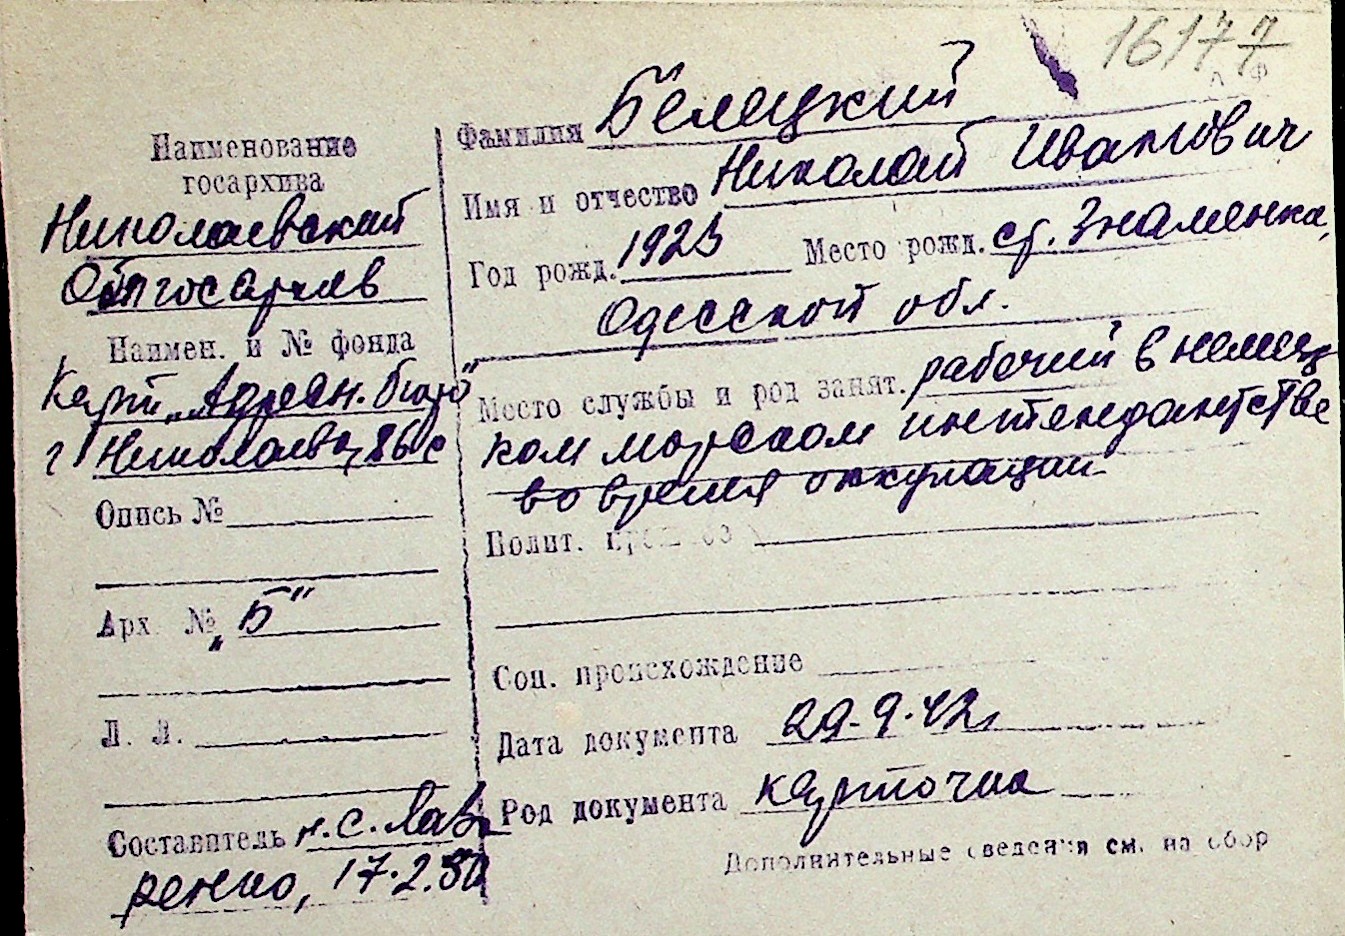 16177
Наименование
госархива
Николаевский
Облгосархив
Наимен. и № фонда
Карт. „Адресн. бюро"
г. Николаева,
Опись №
Арх. № „Б"
Л. Л.
Составитель н.с. Лав
ренко, 17.2.50
Фамилия Белецкий
Имя и отчество Николай Иванович
Год рожд. 1923 Место рожд. ст. Знаменка,
Одесской обл.
Место службы и род занят. рабочий в немец
ком морском интендантстве
во время оккупации
Полит.
Соц. происхождение
Дата документа 29.9.42г
Род документа карточка
Дополнительные сведения см. на обор